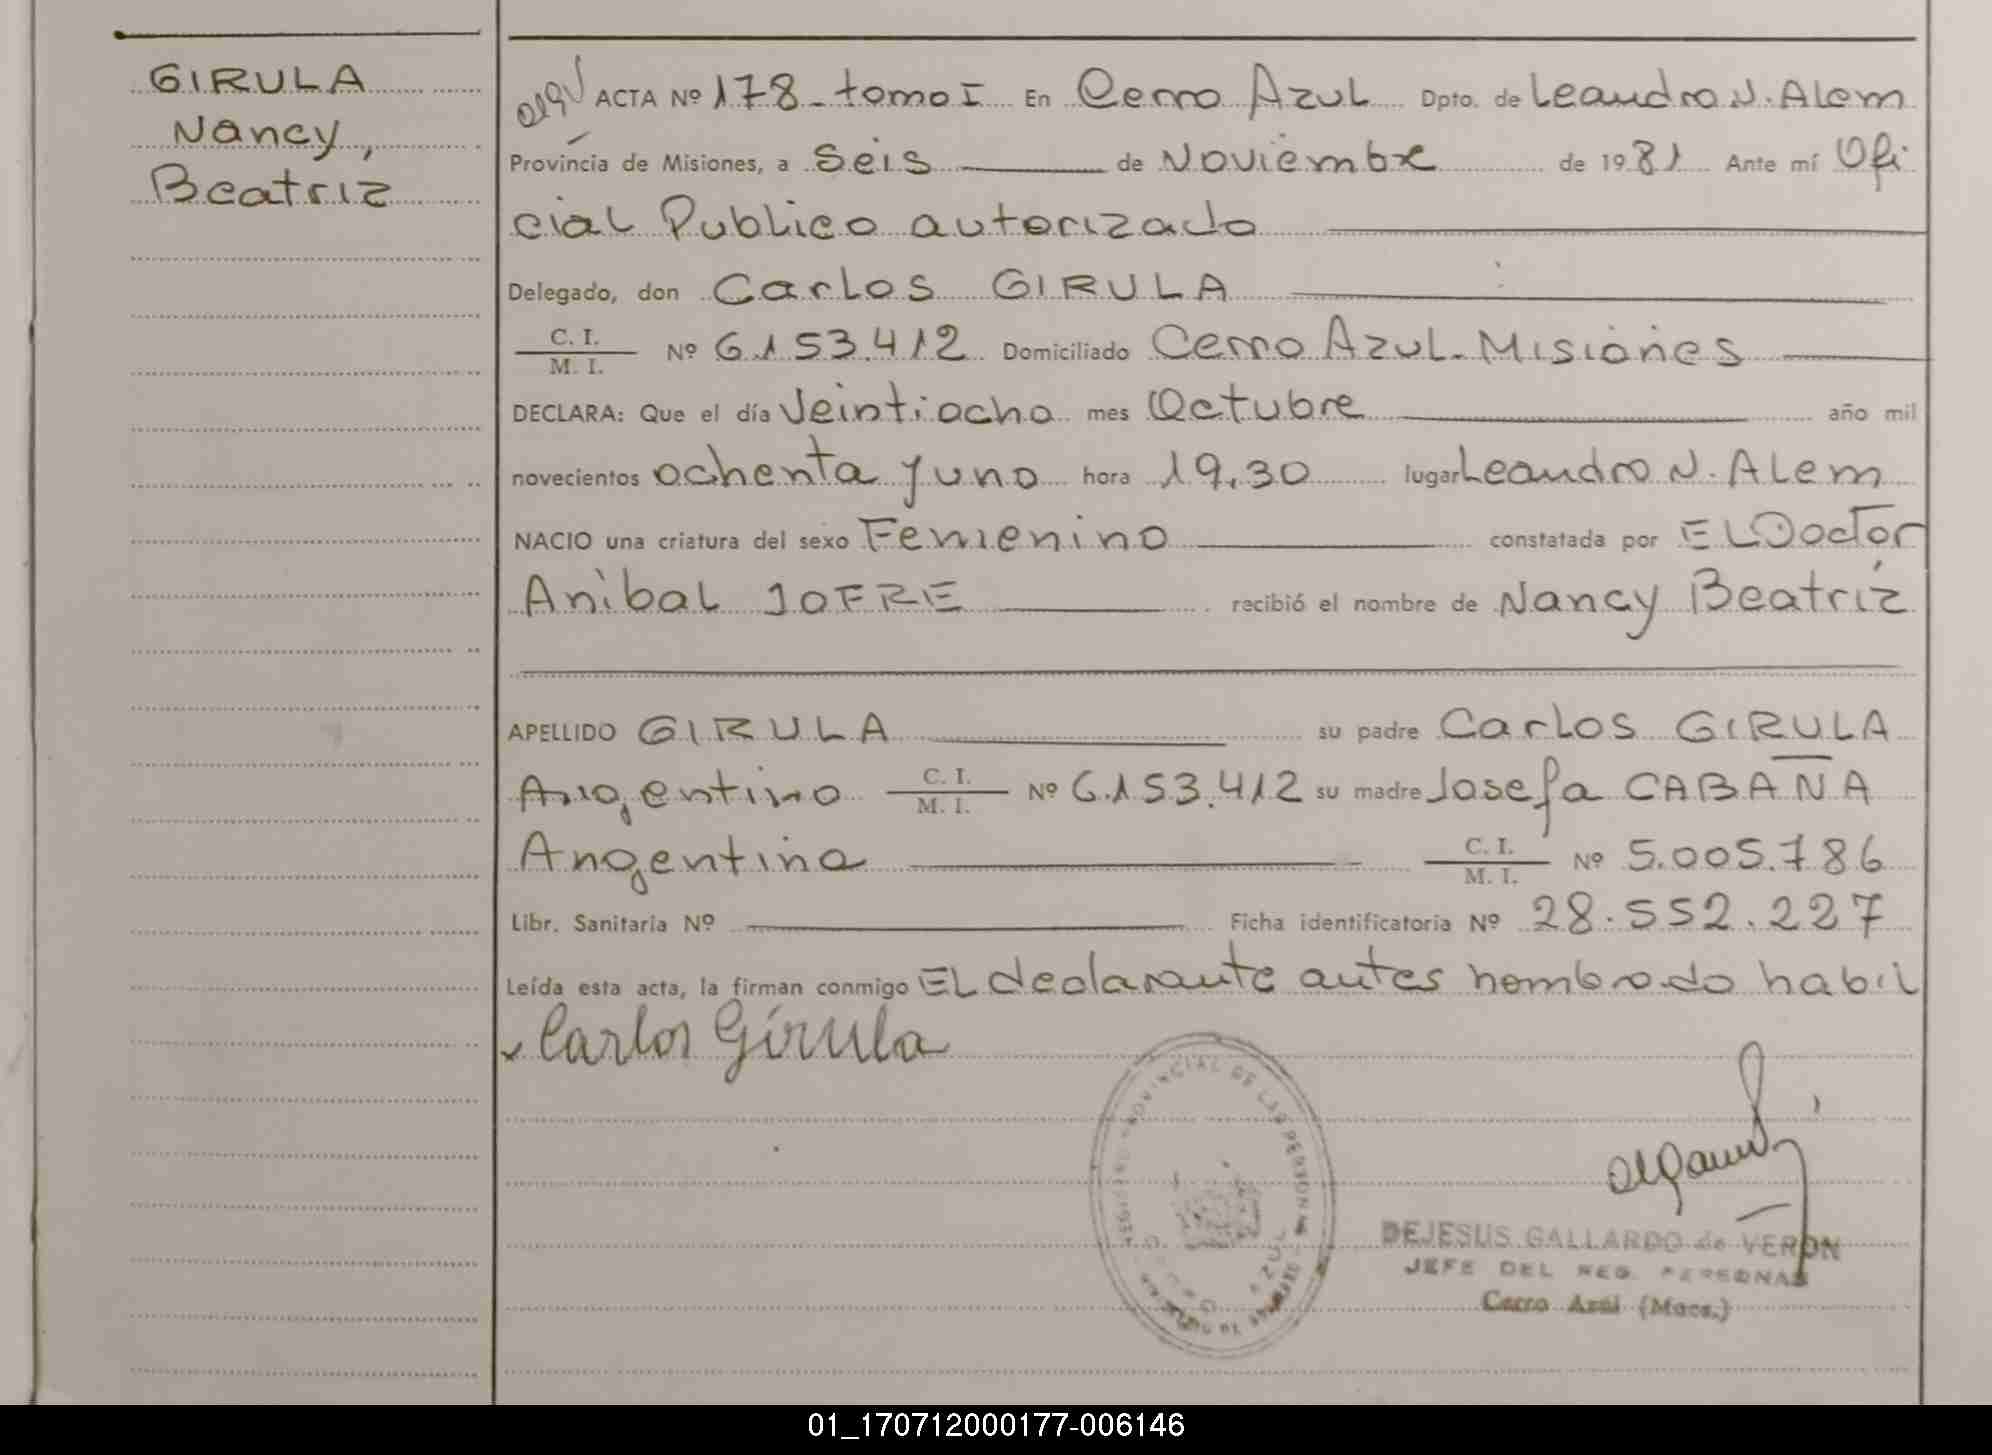 GIRULA
Nancy,
Beatriz
ACTA Nº 178 - tomo I En Cerro Azul Dpto. de Leandro N. Alem
Provincia de Misiones, a Seis de Noviembre de 1981 Ante mí Ofi
cial Publico autorizado
Delegado, don Carlos GIRULA
C. I.
M. I. Nº 6.153.412 Domiciliado Cerro Azul - Misiones
DECLARA: Que el día Veintiocho mes Octubre año mil
novecientos ochenta y uno hora 19,30 lugar Leandro N. Alem
NACIO una criatura del sexo Femenino constatada por EL Doctor
Anibal JOFRE recibió el nombre de Nancy Beatriz
APELLIDO GIRULA su padre Carlos GIRULA
Argentino C. I. M. I. Nº 6.153.412 su madre Josefa CABAÑA
Argentina C. I. M. I. Nº 5.005.786
Libr. Sanitaria Nº Ficha identificatoria Nº 28.552.227
Leída esta acta, la firman conmigo EL declarante antes nombrado habil
Carlos Girula
PROVINCIAL DE LAS PERSONAS
DEJESUS GALLARDO de VERON
JEFE DEL REG. PERSONAS
Cerro Azul (Mnes.)
01_170712000177-006146